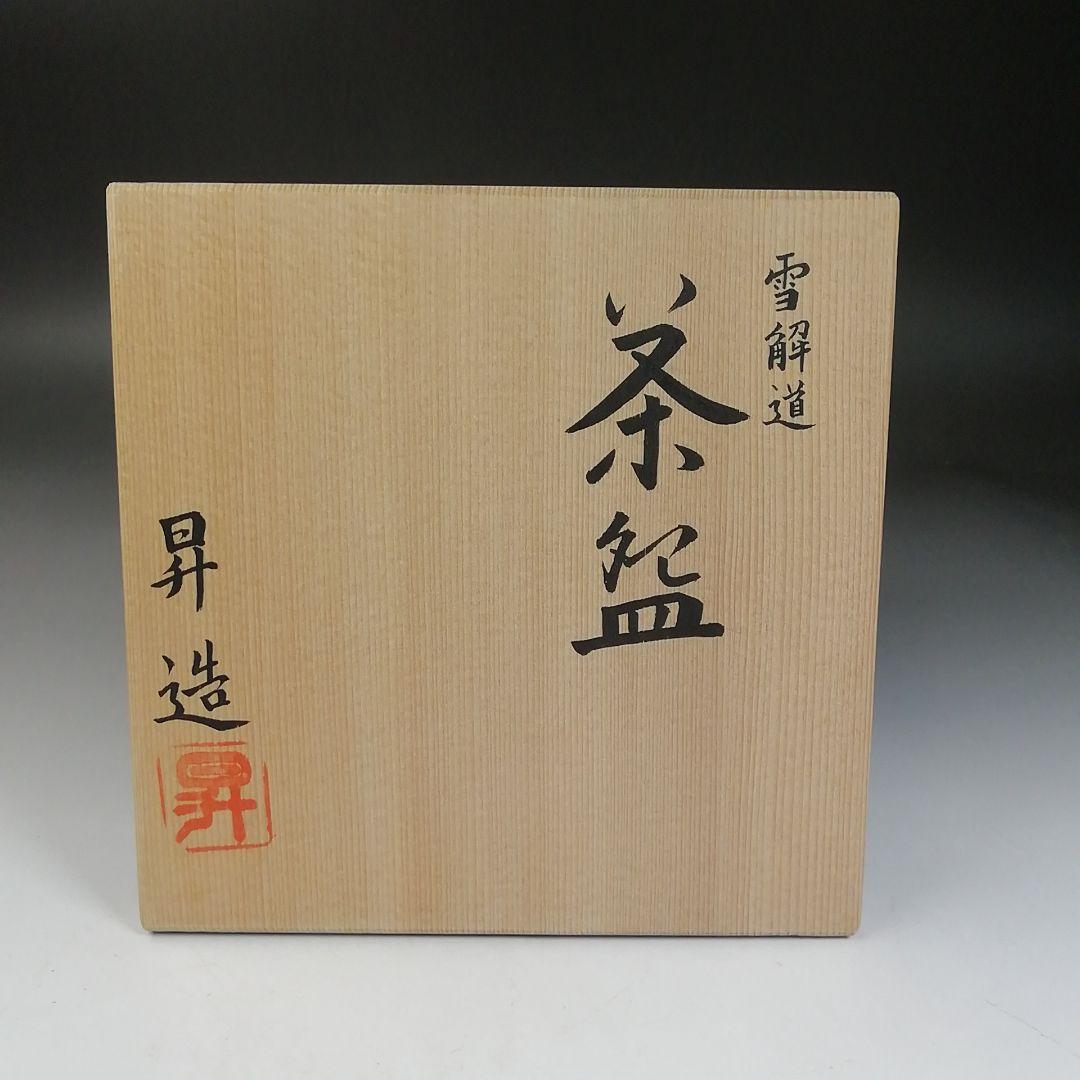 雪解道
茶盌
昇造
昇